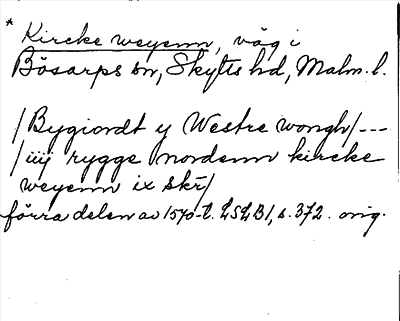 * Kircke weyenn, väg i
Bösarps sn, Skytts hd, Malm. l.
/Bygiordt y Westre wongh/---
/iiij rygge nordenn kircke
weyenn ix skr/
förra delen av 1570-t. LSLB1, s. 372. orig.